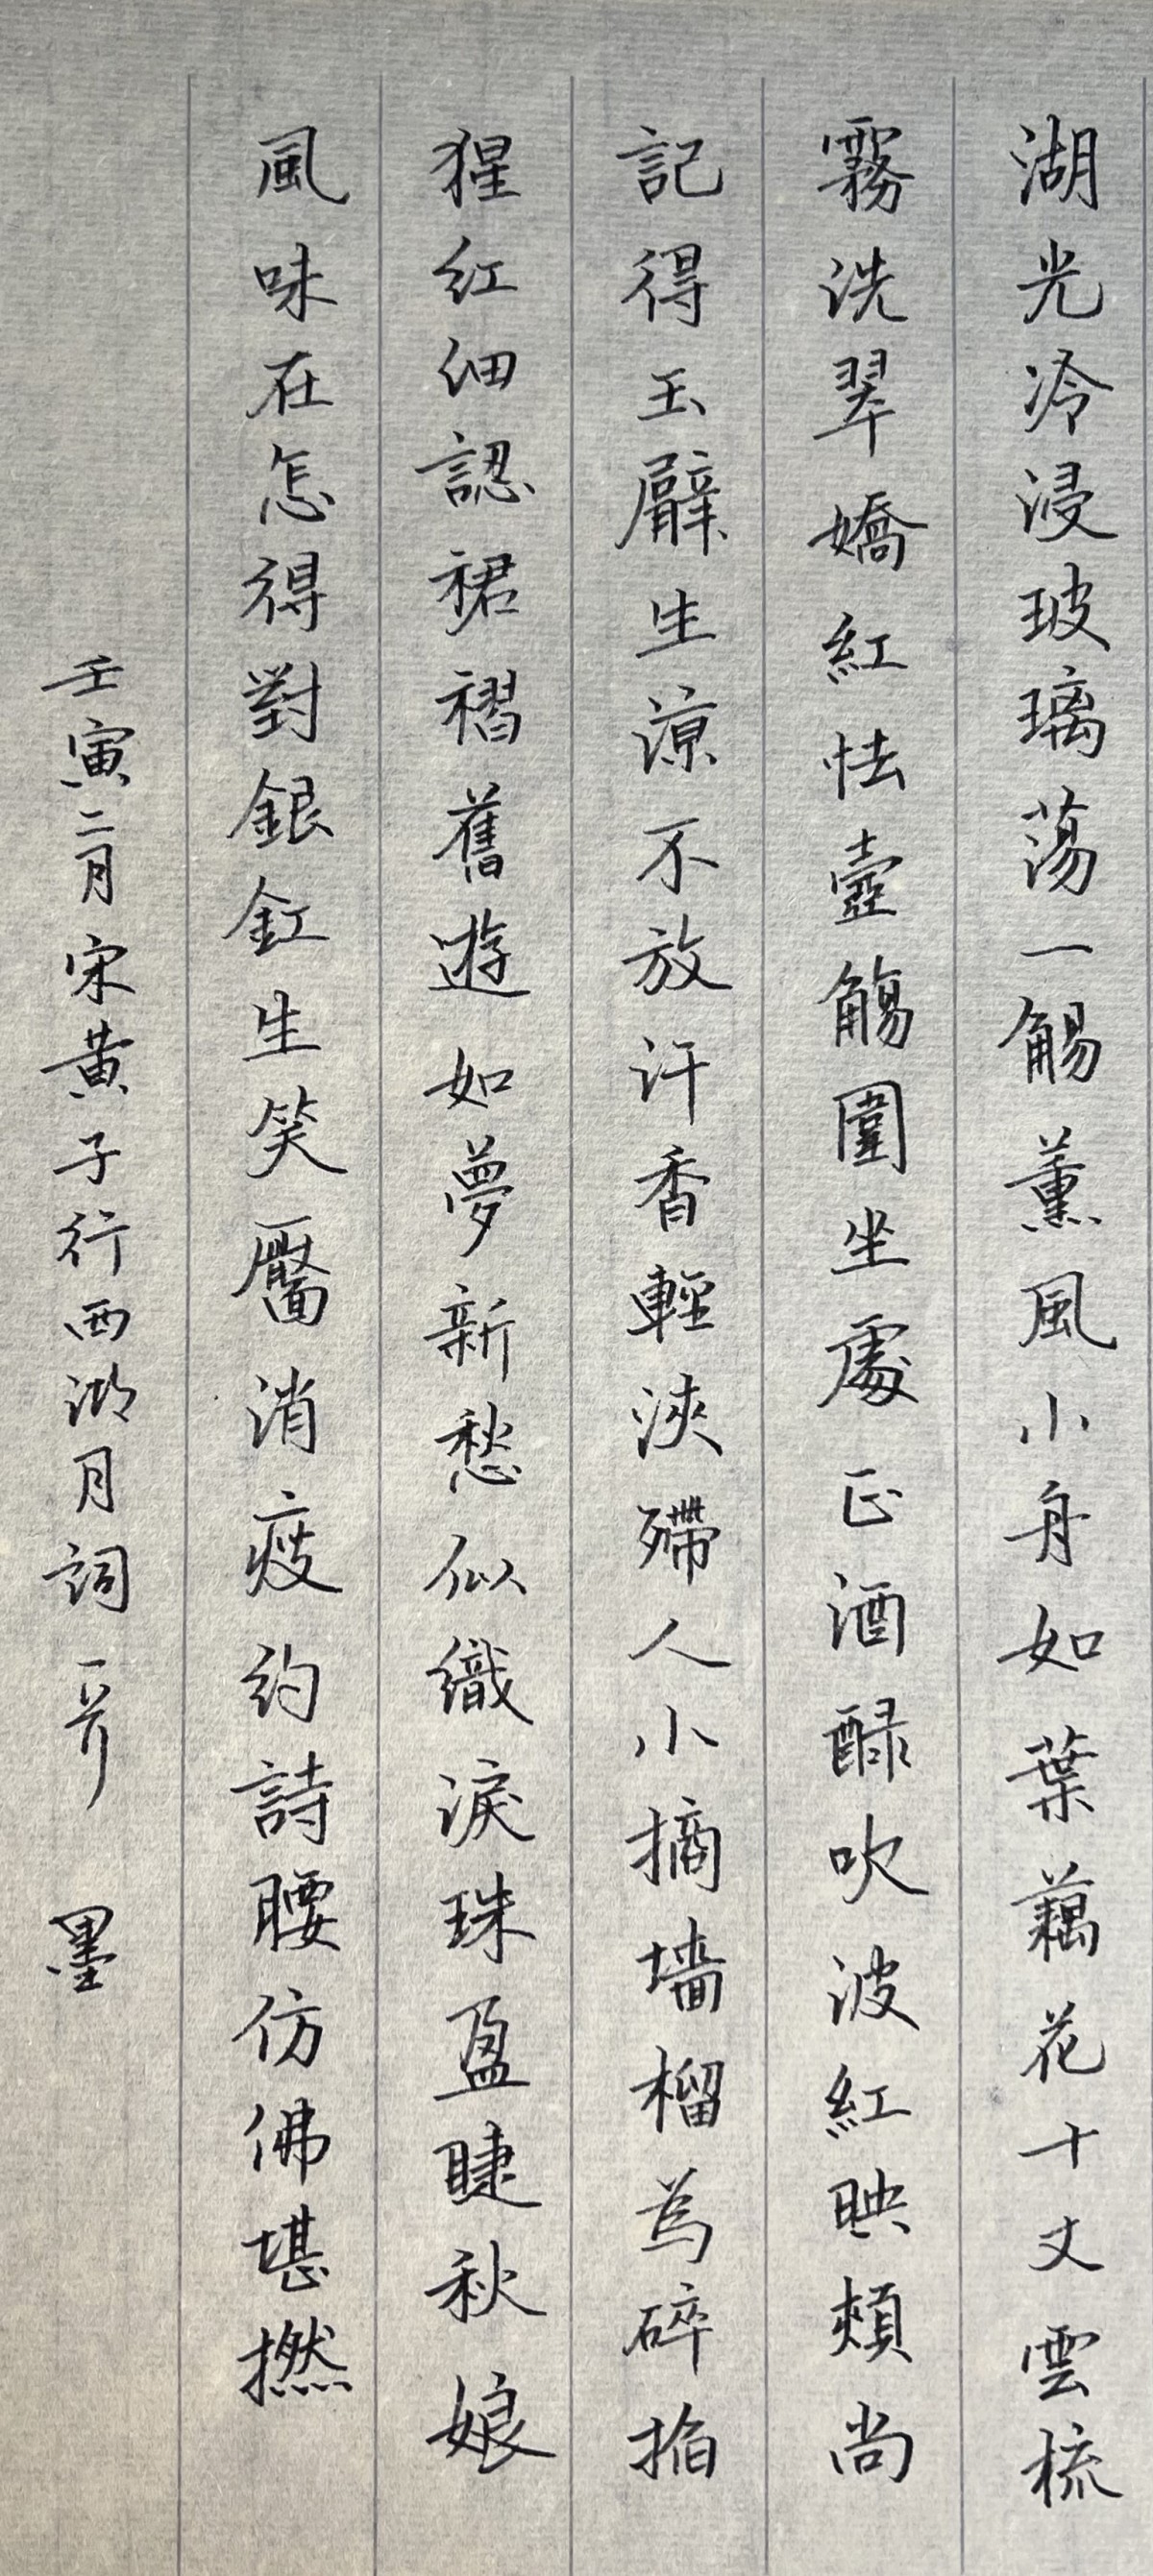 湖光冷浸玻璃荡一觴薰風小舟如葉藕花十丈雲梳
霧洗翠嬌紅怯壺觴圍坐處正酒醁吹波紅映頰尚
記得玉臂生涼不放汗香輕浹殢人小摘墙榴為碎掐
猩红细認裙褶舊遊如夢新愁似織淚珠盈睫秋娘
風味在怎得對銀釭生笑靨消瘦約詩腰仿佛堪撚
壬寅二月宋黄子行西湖月詞 墨